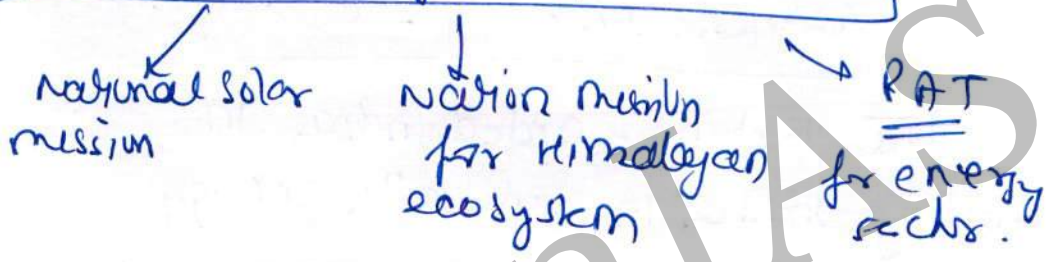 National Solar
mission
Nation mission
for Himalayan
ecosystem
PAT
for energy
sector.
IAS